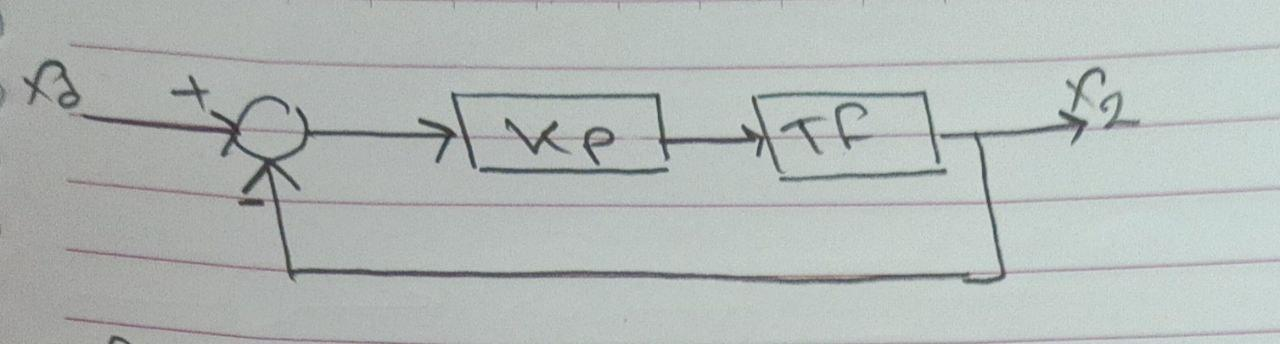 xd + Kp TF x2
-